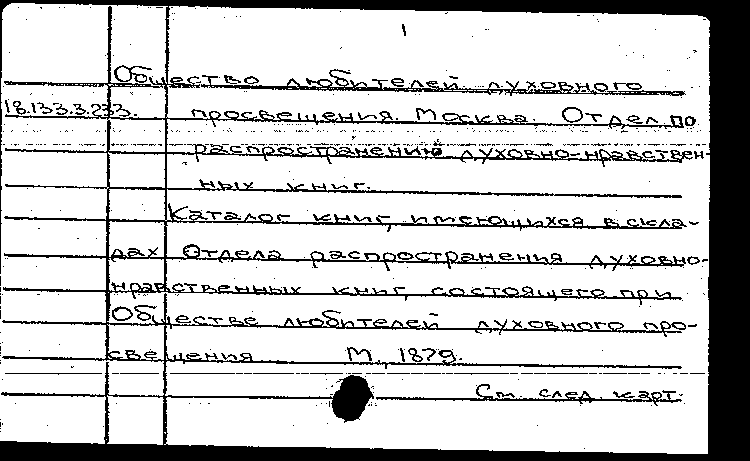 1
Общество любителей духовного
18.133.3.233. просвещения. Москва. Отдел по
распространению духовно-нравствен-
ных книг.
Каталог книг, имеющихся в скла-
дах Отдела распространения духовно-
нравственных книг, состоящего при
Обществе любителей духовного про-
свещения М., 1879.
См. след. карт.